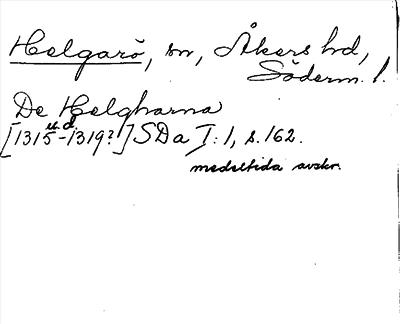 Helgarö, sn, Åkers hd,
Söderm. l.
De Helgharna
u.d.
[1315-1319?] SDa I:1, s. 162.
medeltida avskr.